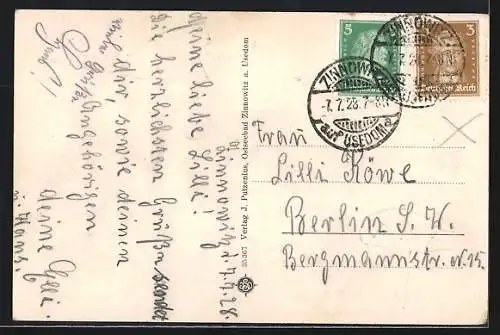 Zinnowitz, d. 7.7.28.
Meine liebe Lilli!
Die herzlichsten Grüße sendet
dir, sowie deinen
Angehörigen
deine Elli
u. Hans.
Gruß!
35367 Verlag J. Putzenius, Ostseebad Zinnowitz a. Usedom
5
3
Deutsches Reich
ZINNOWITZ
-7.7.28.7-8N
auf USEDOM
a
Frau
Lilli Röwe
Berlin S. W.
Bergmannstr. nr. 15.